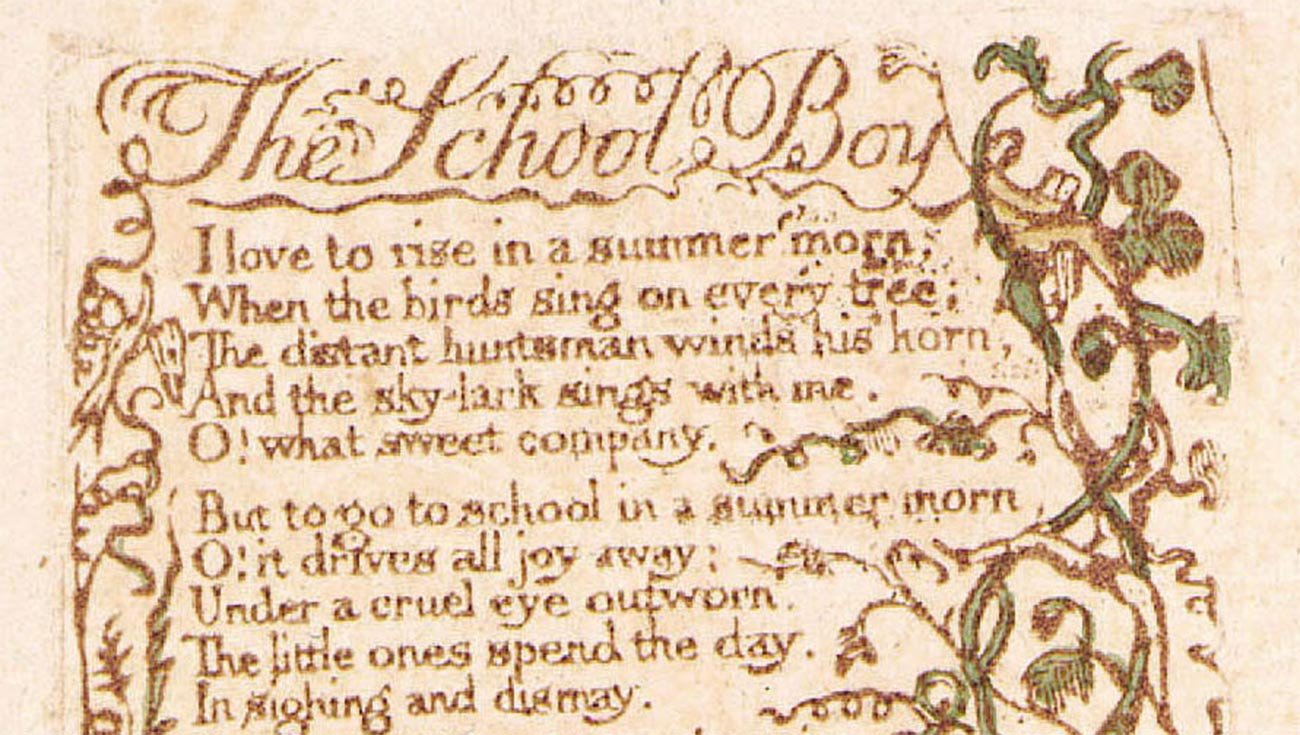 The School Boy
I love to rise in a summer morn,
When the birds sing on every tree;
The distant huntsman winds his horn,
And the sky-lark sings with me.
O! what sweet company.
But to go to school in a summer morn,
O! it drives all joy away;
Under a cruel eye outworn.
The little ones spend the day.
In sighing and dismay.